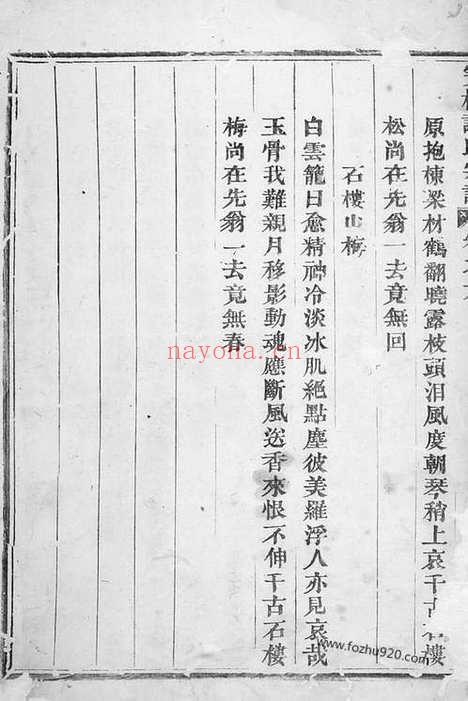 原抱棟梁材鶴翻曉露枝頭泪風度朝琴稍上哀千古石樓
松尚在先翁一去竟無回
石樓古梅
白雲籠日愈精神冷淡冰肌絕點塵彼美羅浮人亦見哀哉
玉骨我難親月移影動魂應斷風送香來恨不伸千古石樓
梅尚在先翁一去竟無春
nayona.cn
www.fozhu920.com